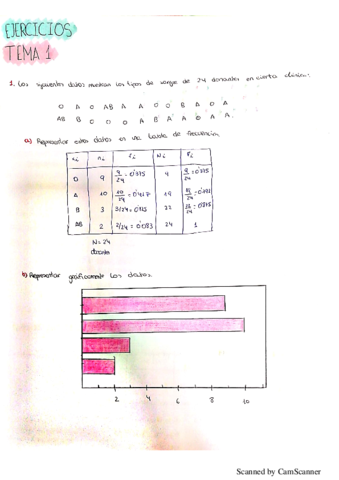 EJERCICIOS
TEMA 1
1. Los siguientes datos muestran los tipos de sangre de 24 donantes en cierta clínica:
O A O AB A A O O B A O A
AB B O O O A B A A O A A
a) Representar estos datos en una tabla de frecuencia.
xi ni fi Ni Fi
O 9 9/24 = 0'375 9 9/24 = 0'375
A 10 10/24 = 0'417 19
B 3 3/24 = 0'125 22
AB 2 2/24 = 0'083 24 1
N = 24
b) Representar gráficamente los datos.
2 4 6 8 10
Scanned by CamScanner